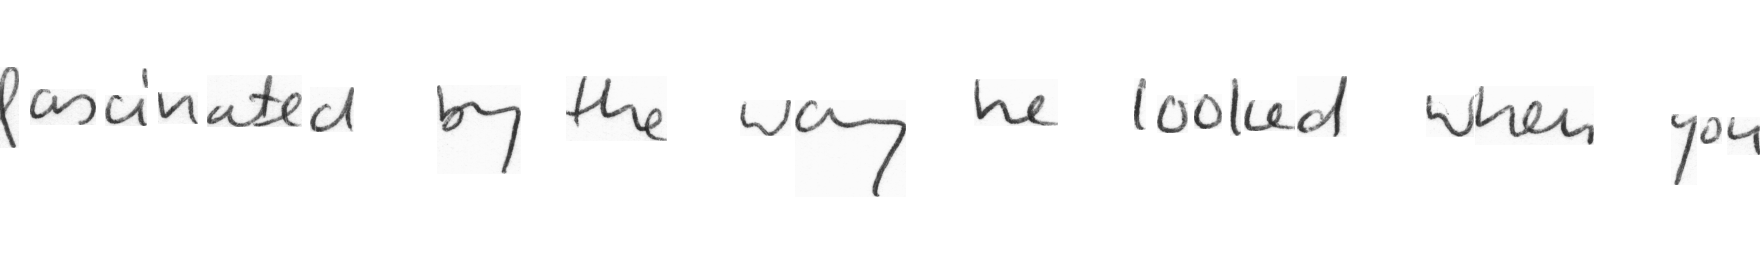 fascinated by the way he looked when you